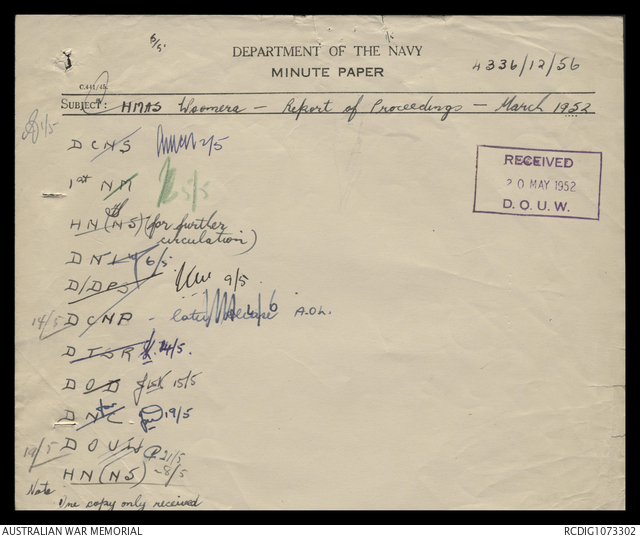 6/5
DEPARTMENT OF THE NAVY
MINUTE PAPER
4336/12/56
SUBJECT: HMAS Woomera — Report of Proceedings — March 1952
1/5
DCNS 2/5
1st NM 5/5
RECEIVED
20 MAY 1952
D. O. U. W.
HN(NS) (for further
circulation)
6/5
D/DPS 9/5
14/5 DCNP - later A.O.L.
DTSR 14/5.
DOD 15/5
DNC 19/5
19/5 DOUW 21/5
HN(NS) -8/5
Note
One copy only received
AUSTRALIAN WAR MEMORIAL
RCDIG1073302